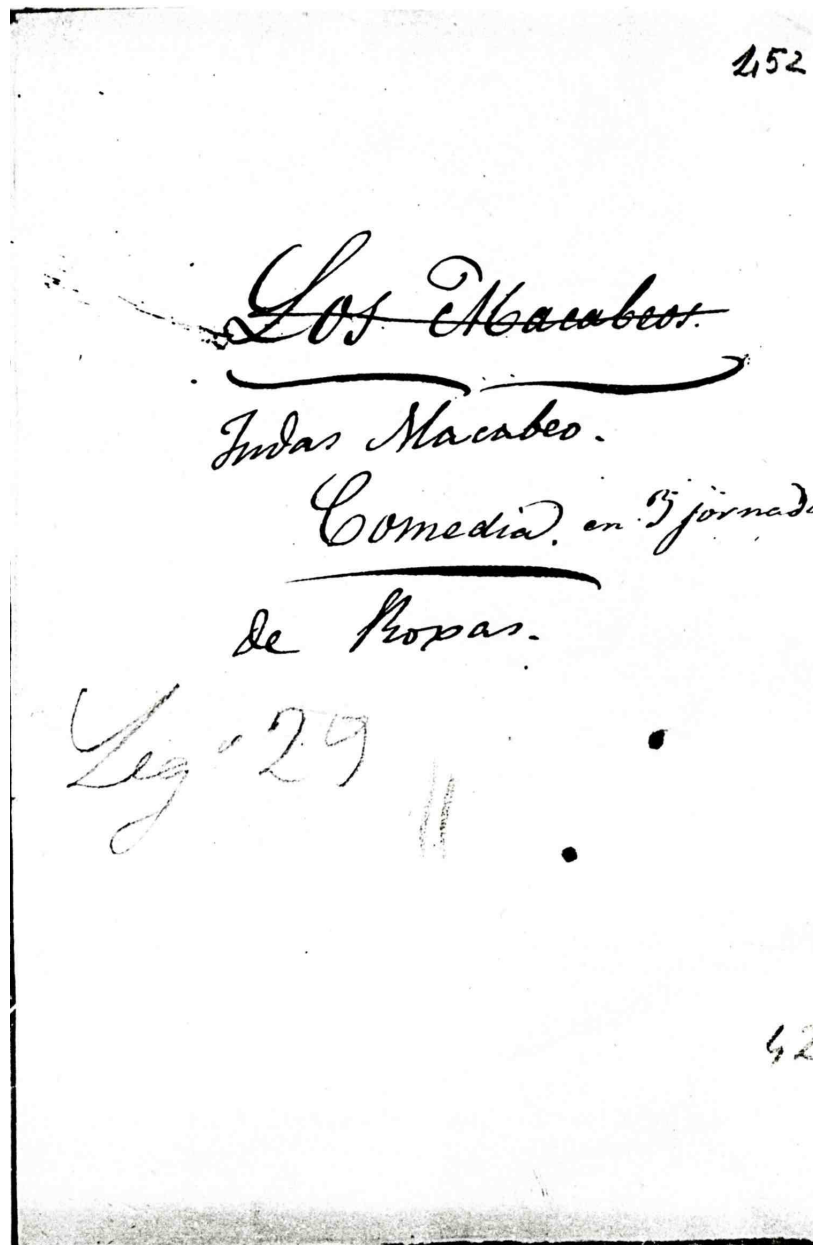 152
Los Macabeos.
Judas Macabeo.
Comedia. en 3 jornada
de Roxas.
Leg.º 29
42